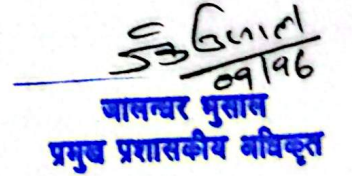 ०९/१६
जालन्धर भुसाल
प्रमुख प्रशासकीय अधिकृत